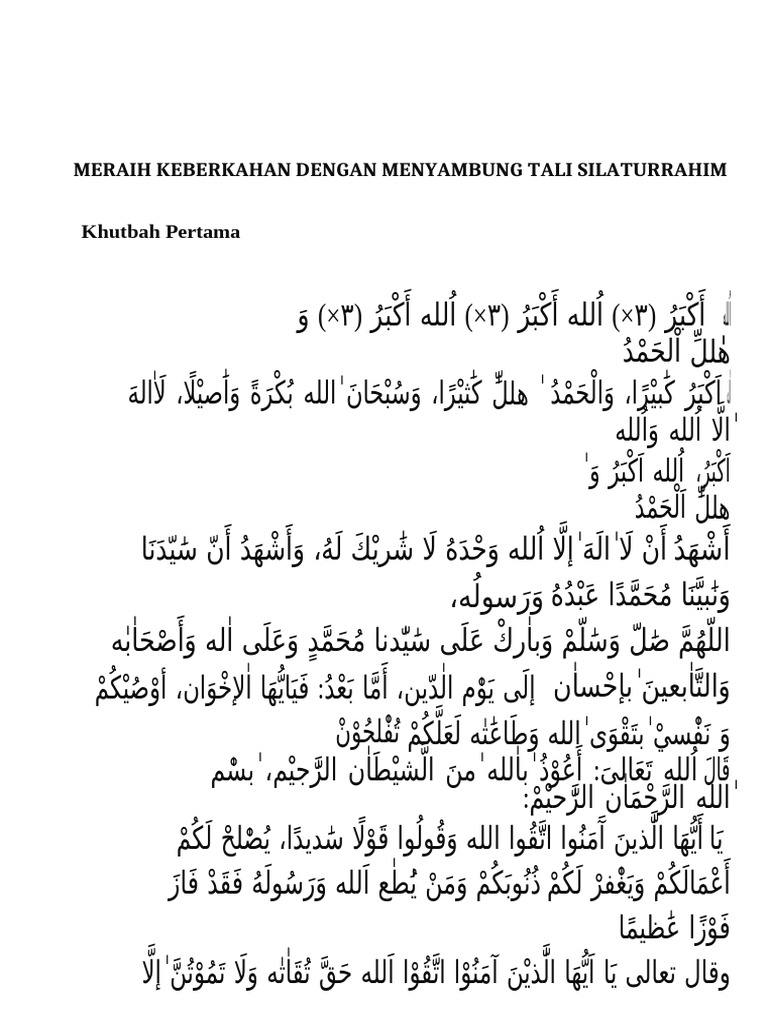 MERAIH KEBERKAHAN DENGAN MENYAMBUNG TALI SILATURRAHIM
Khutbah Pertama
أَكْبَرُ (٣×) اُلله أَكْبَرُ (٣×) اُلله أَكْبَرُ (٣×) وَ
هٰللِّ اْلحَمْدُ
اَكْبَرُ كَبِيْرًا، وَالْحَمْدُ هللِّ كَثِيْرًا، وَسُبْحَانَ الله بُكْرَةً وَأَصِيْلًا، لَااِلهَ
اِلَّا اُلله وَاُلله
اَكْبَرُ، اُلله اَكْبَرُ وَ
هللِّ اَلْحَمْدُ
أَشْهَدُ أَنْ لَا اِلَهَ إِلَّا اُلله وَحْدَهُ لَا شَرِيْكَ لَهُ، وَأَشْهَدُ أَنّ سَيّدَنَا
وَنَبِيَّنَا مُحَمَّدًا عَبْدُهُ وَرَسولُه،
اللّهُمَّ صَلّ وَسَلّمْ وَبارِكْ عَلَى سَيّدنا مُحَمَّدٍ وَعَلَى اٰله وَأَصْحَابِه
وَالتَّابِعينَ بِإحْسانِ إِلَى يَوْمِ الدّين، أَمَّا بَعْدُ: فَيَايُّهَا الإِخْوَان، أوْصُيْكُمْ
وَ نَفْسيْ بِتَقْوَى الله وَطَاعَتِه لَعَلَّكُمْ تُفْلِحُوْنْ
قَالَ اُلله تَعَالىَ: أَعُوْذُ بِالله مِنَ الَّشيْطَانِ الرَّجِيْم، بِسْمِ
الله الرَّحْمَانِ الرَّحِيْمْ:
يَا أَيُّهَا الَّذِينَ آَمَنُوا اتَّقُوا الله وَقُولُوا قَوْلًا سَدِيدًا، يُصْلِحْ لَكُمْ
أَعْمَالَكُمْ وَيَغْفِرْ لَكُمْ ذُنُوبَكُمْ وَمَنْ يُطِعِ اَلله وَرَسُولَهُ فَقَدْ فَازَ
فَوْزًا عَظِيمًا
وقال تعالى يَا اَيُّهَا الَّذِيْنَ آمَنُوْا اتَّقُوْا اَلله حَقَّ تُقَاتِه وَلَا تَمُوْتُنَّ إِلَّا